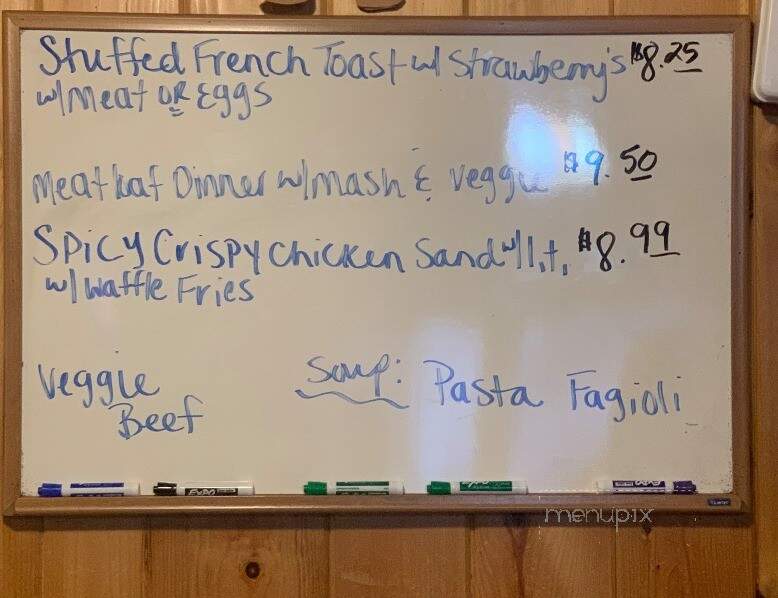 Stuffed French Toast w/ Strawberry's $8.25
w/Meat OR Eggs
Meatloaf Dinner w/mash & veggie $9.50
Spicy Crispy Chicken Sand w/ l,t, $8.99
w/ Waffle Fries
Veggie
Beef
Soup: Pasta Fagioli
EXPO
EXPO
menupix